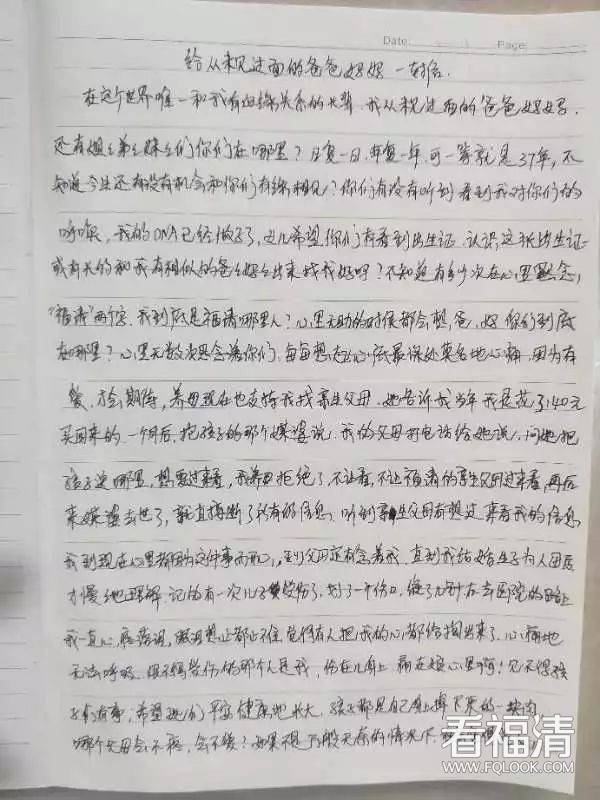 Date: Page:
给从未见过面的爸爸妈妈一封信.
在这个世界唯一和我有血缘关系的长辈,我从未见过面的爸爸妈妈,
还有姐姐弟弟妹妹们你们在哪里?日复一日,年复一年,可一等就是37年,不
知道今生还有没有机会和你们有缘相见?你们有没有听到看到我对你们的
呼唤,我的DNA已经做了,更希望你们有看到出生证,认识这张出生证
或有长的和我有相似的爸爸妈妈出来找我好吗?不知道有多少次在心里默念,
"福清"两个字,我到底是福清哪里人?心里无助的时候都会想爸,妈你们到底
在哪里?心里无数次思念着你们,每每想到心底最深处莫名地心痛,因为有
爱,才会期待,养母现在也支持我找亲生父母,她告诉我当年我是花了140元
买回来的,一个月后,抱孩子的那个媒婆说,我的父母打电话给她说,问她把
孩子送哪里,想要过来看,我养母拒绝了,不让看,不让福清的亲生父母过来看,再后
来媒婆去世了,就直接断了所有的信息,听到亲生父母有想过来看我的信息
我到现在心里都因为这件事而,父母还有念着我,直到我结婚生子为人母后
才慢慢地理解,记的有一次儿子受伤了,划了一个伤口,缝了几针,在去医院的路上
我一直心疼落泪,眼泪想止都止不住,觉得有人把我的心都给掏出来了,心痛地
无法呼吸,恨不得受伤的那个人是我,伤在儿身上痛在娘心里啊!见不得孩
子们有事,希望她们平安健康地长大,孩子都是自己身上掉下来的一块肉,
哪个父母会不疼,会不爱?如果不是万般无奈的情况下,
看福清
WWW.FQLOOK.COM